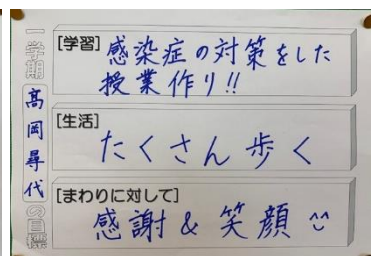 一学期
高岡尋代
の目標
[学習] 感染症の対策をした
授業作り!!
[生活]
たくさん歩く
[まわりに対して]
感謝&笑顔